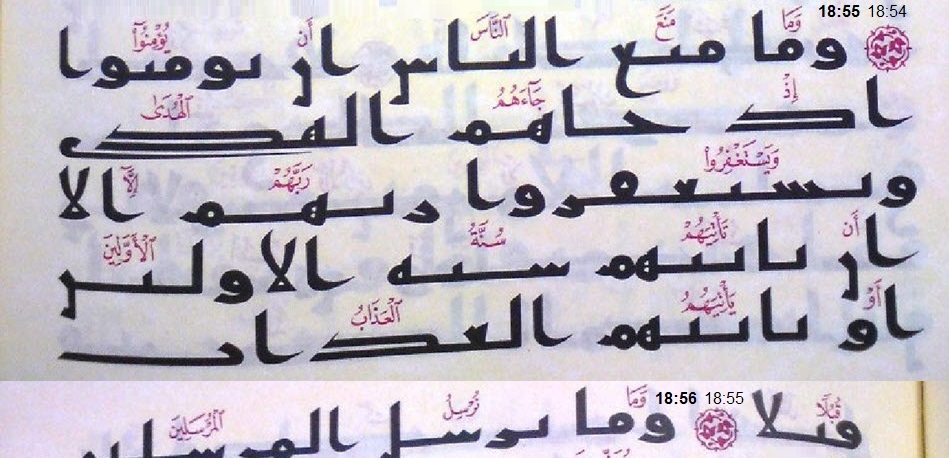 18:55 18:54
وَمَا مَنَعَ ٱلنَّاسَ أَن يُؤْمِنُوٓا۟
وما منع الناس ان يومنوا
إِذْ جَآءَهُمُ ٱلْهُدَىٰ
اذ جاهم الهدى
وَيَسْتَغْفِرُوا۟ رَبَّهُمْ إِلَّآ
ويستغفروا ربهم الا
أَن تَأْتِيَهُمْ سُنَّةُ ٱلْأَوَّلِينَ
ان تاتيهم سنه الاولين
أَوْ يَأْتِيَهُمُ ٱلْعَذَابُ
او ياتيهم العذاب
18:56 18:55
قُبُلًا وَمَا نُرْسِلُ ٱلْمُرْسَلِينَ
قبلا وما نرسل المرسلين